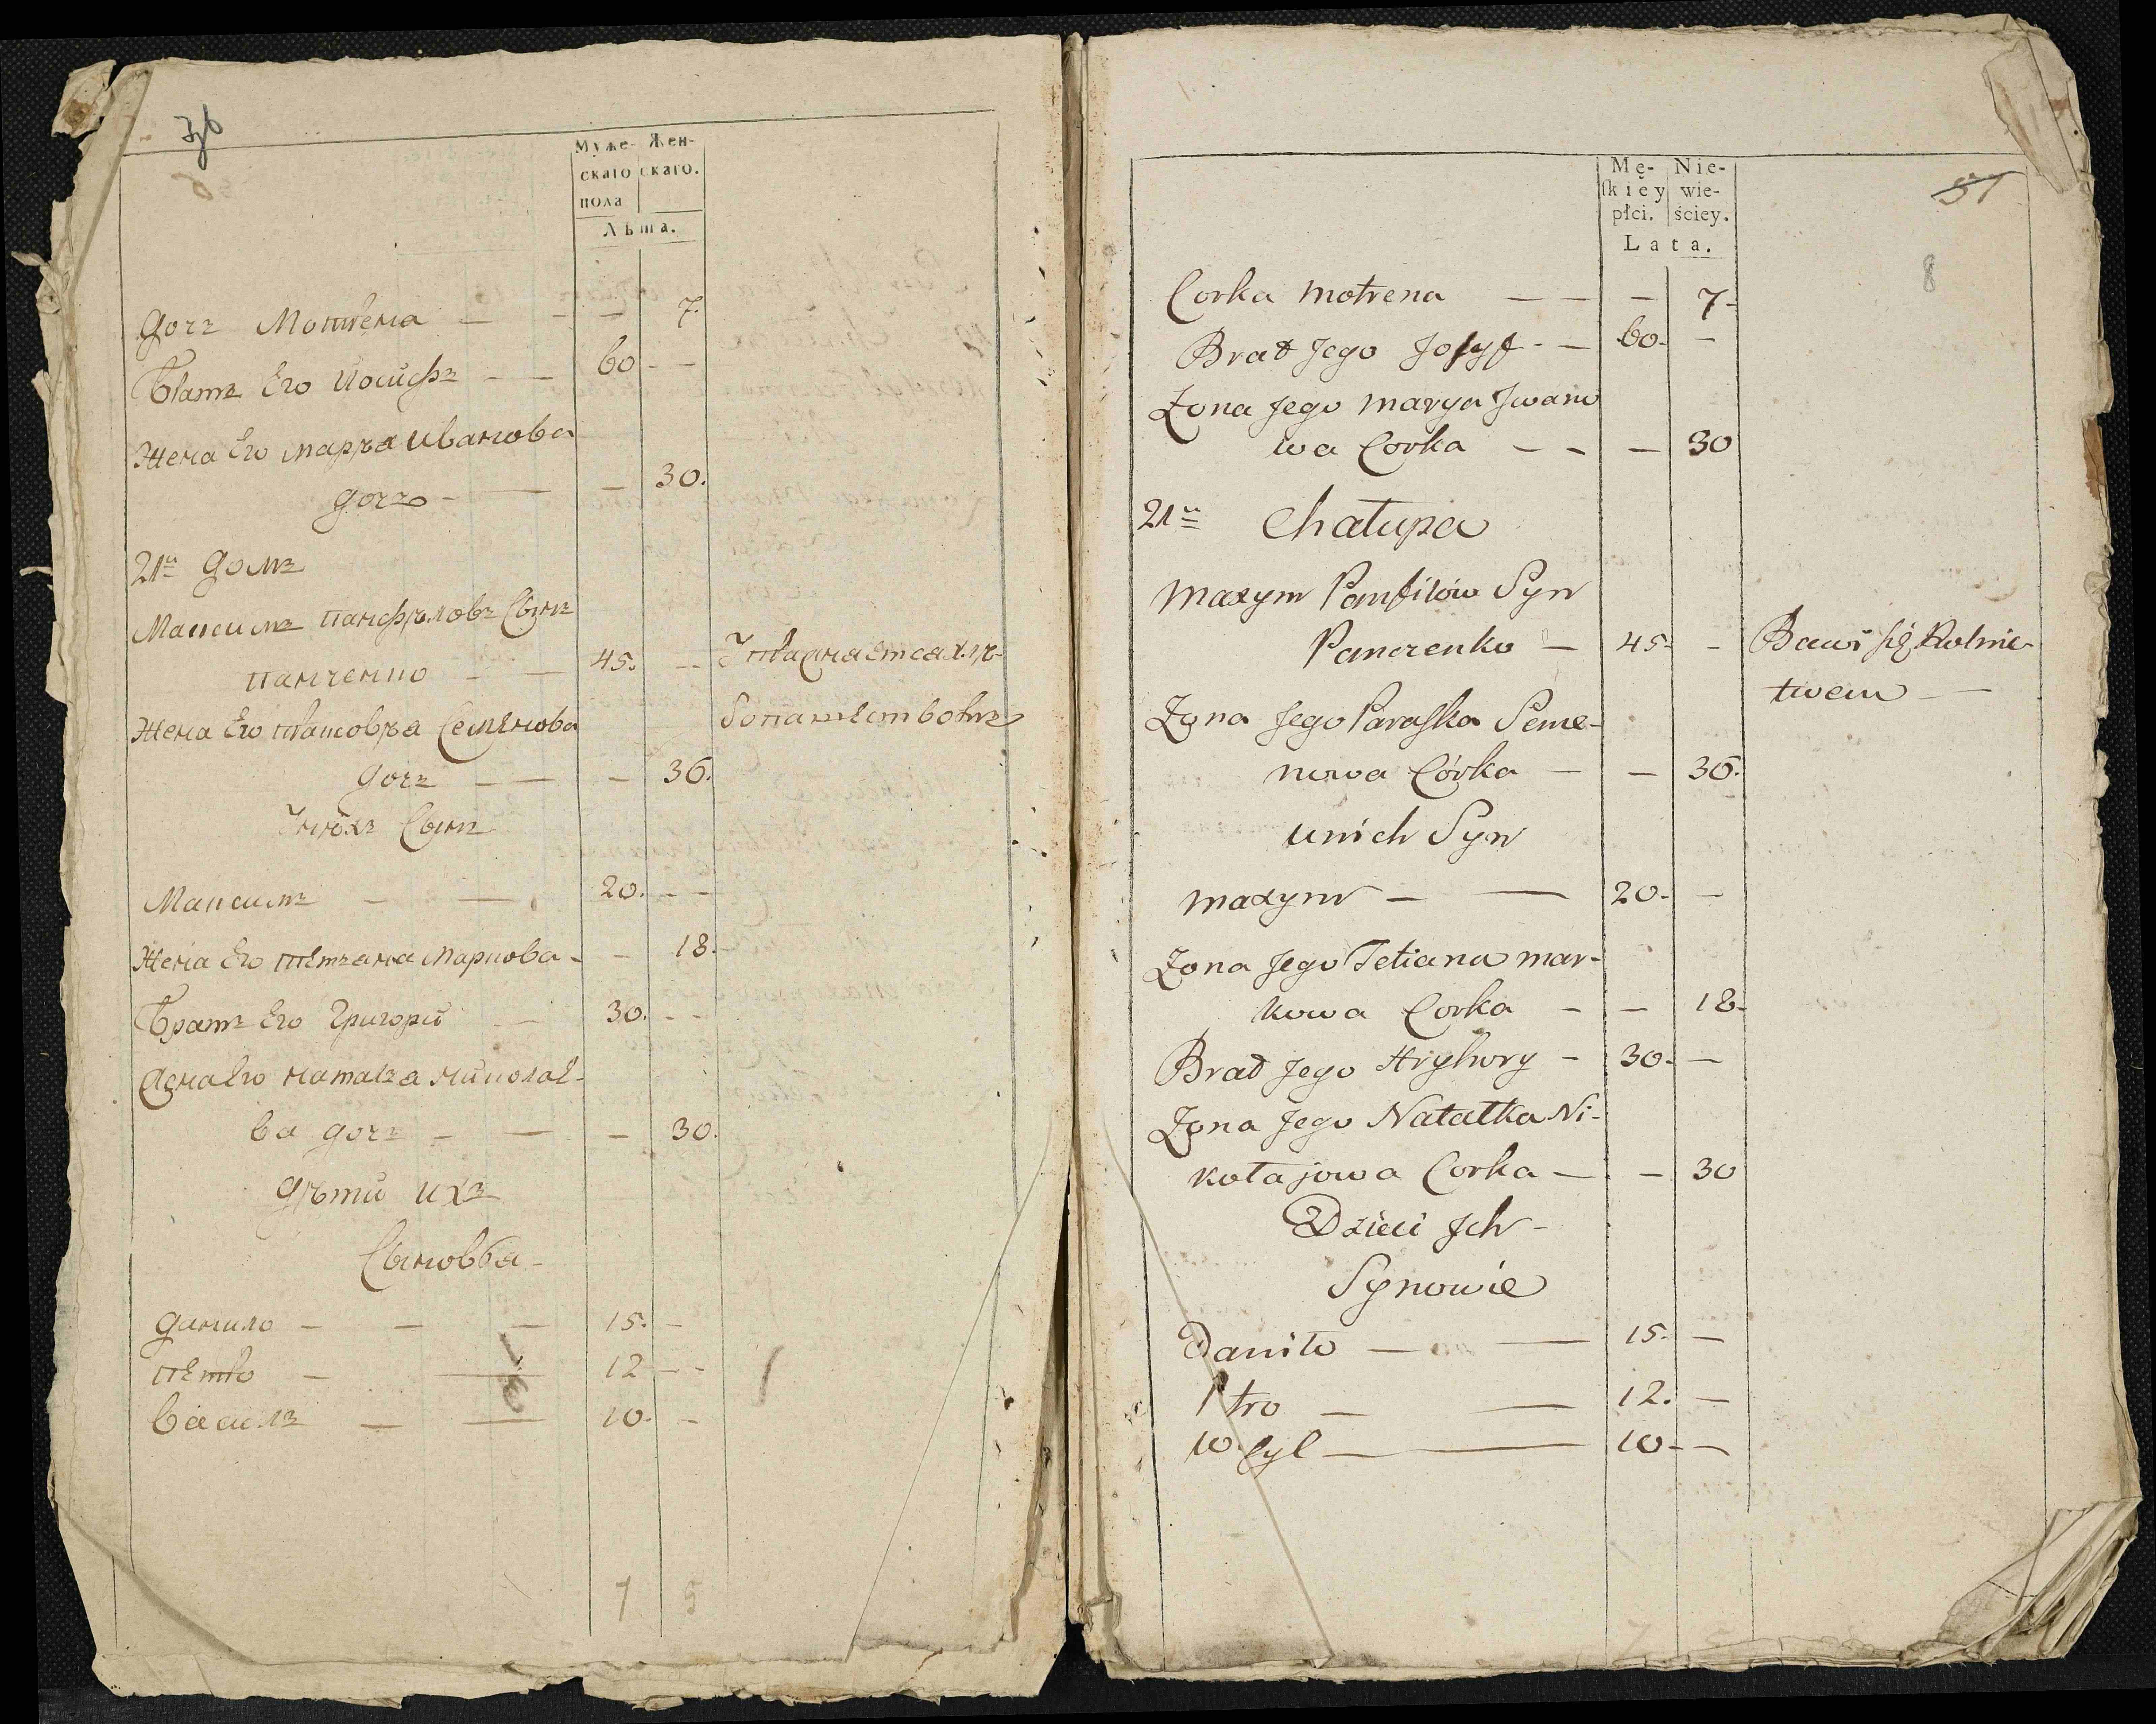 36
Муже- Жен-
скаго скаго.
пола
Лѣта.
дочъ Мотрена — — — 7.
Братъ Его Иосифъ — — 60 — —
Жена Его марѣя Иванова
дочъ — — — 30.
21й домъ
Максимъ панфѣловъ Сынъ
панченко — — 45. —
Упражнается хлѣ-
бопашествомъ
Жена Его Прасовѣя Семенова
дочъ — — — 36.
Унѣхъ Сынъ
Максимъ — — 20. — —
Жена Его тетяна Маркова — — 18.
Братъ Его Григорий — 30. — —
Жена Его наталка николае-
ва дочъ — — — 30.
дѣти ихъ
Сыновья
данило — — — 15. —
петро — — 12 — —
василъ — — 10. —
7 5
Mę- Nie-
ſkiéy wie-
płci. ściey.
Lata.
37
8
Corka Motrena — — — 7-
Brat Jego Joſyf - — 60. —
Zona Jego Marya Jwano
wa Corka — - — 30
21u Chałupa
Maxym Panfilów Syn
Panczenko — 45- -
Bawi ſię Rolnic-
twem —
Zona Jego Paraſka Seme-
nowa Córka — — 36.
unich Syn
Maxym — — 20- —
Zona Jego Tetiana Mar-
kowa Corka - — 18-
Brat Jego Hryhory - 30- —
Zona Jego Natałka Ni-
kołajowa Corka — — 30
Dzieci Jch -
Synowie
Daniło — — 15- —
Ptro — — 12. —
Waſyl — — 10- —